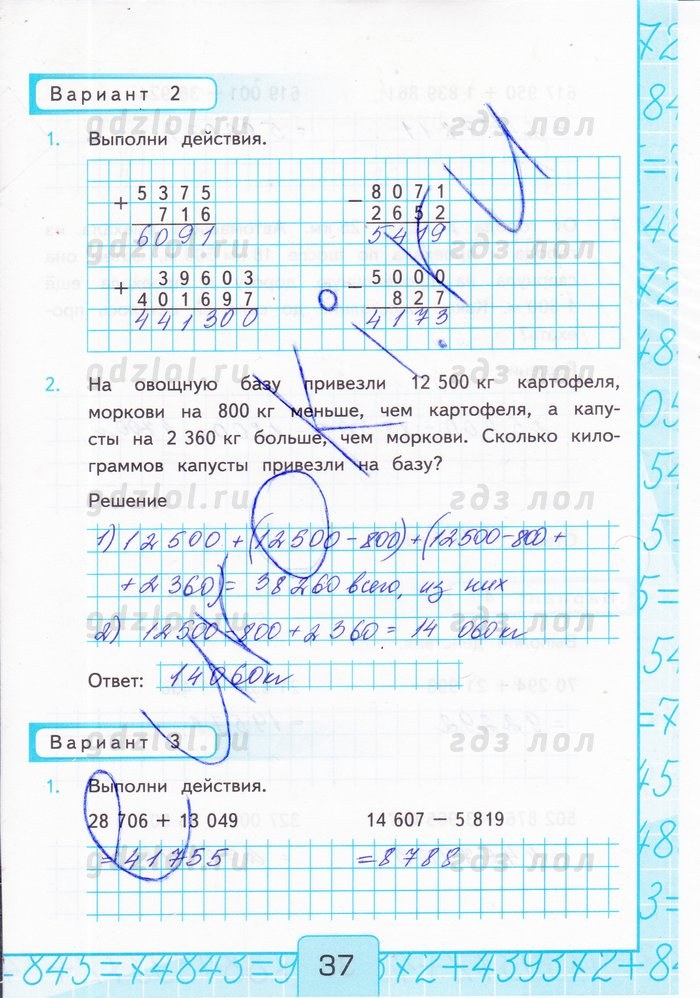 Вариант 2
gdzlol.ru гдз лол
1. Выполни действия.
+ 5375 − 8071
716 2652
6091 5419
gdzlol.ru гдз лол
+ 39603 − 5000
401697 827
441300 4173
gdzlol.ru гдз лол
2. На овощную базу привезли 12 500 кг картофеля,
моркови на 800 кг меньше, чем картофеля, а капу-
сты на 2 360 кг больше, чем моркови. Сколько кило-
граммов капусты привезли на базу?
Решение
gdzlol.ru гдз лол
1) 12500 + (12500 − 800) + (12500 − 800 +
+ 2360) = 38260 всего, из них
gdzlol.ru гдз лол
2) 12500 − 800 + 2360 = 14 060 кг
Ответ: 14060 кг
Вариант 3
gdzlol.ru гдз лол
1. Выполни действия.
28 706 + 13 049 14 607 − 5 819
= 41755 = 8788
gdzlol.ru гдз лол
37